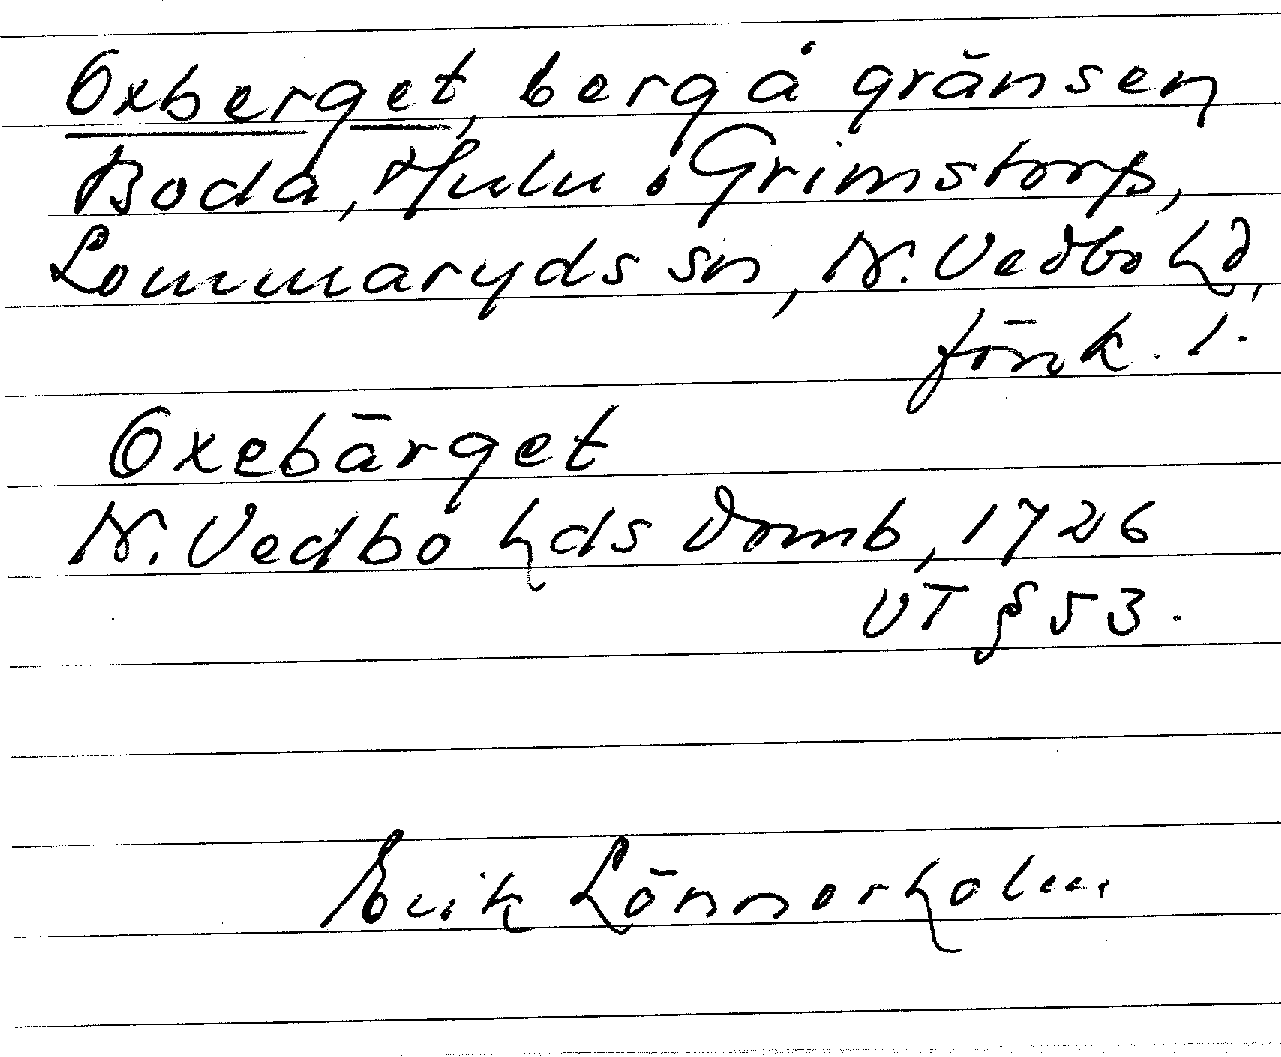 Oxberget, berg å gränsen
Boda, Hulu o Grimstorp,
Lommaryds sn, N. Vedbo hd,
Jönk. l.
Oxebärget
N. Vedbo hds Domb, 1726
VT § 53.
Erik Lönnerholm